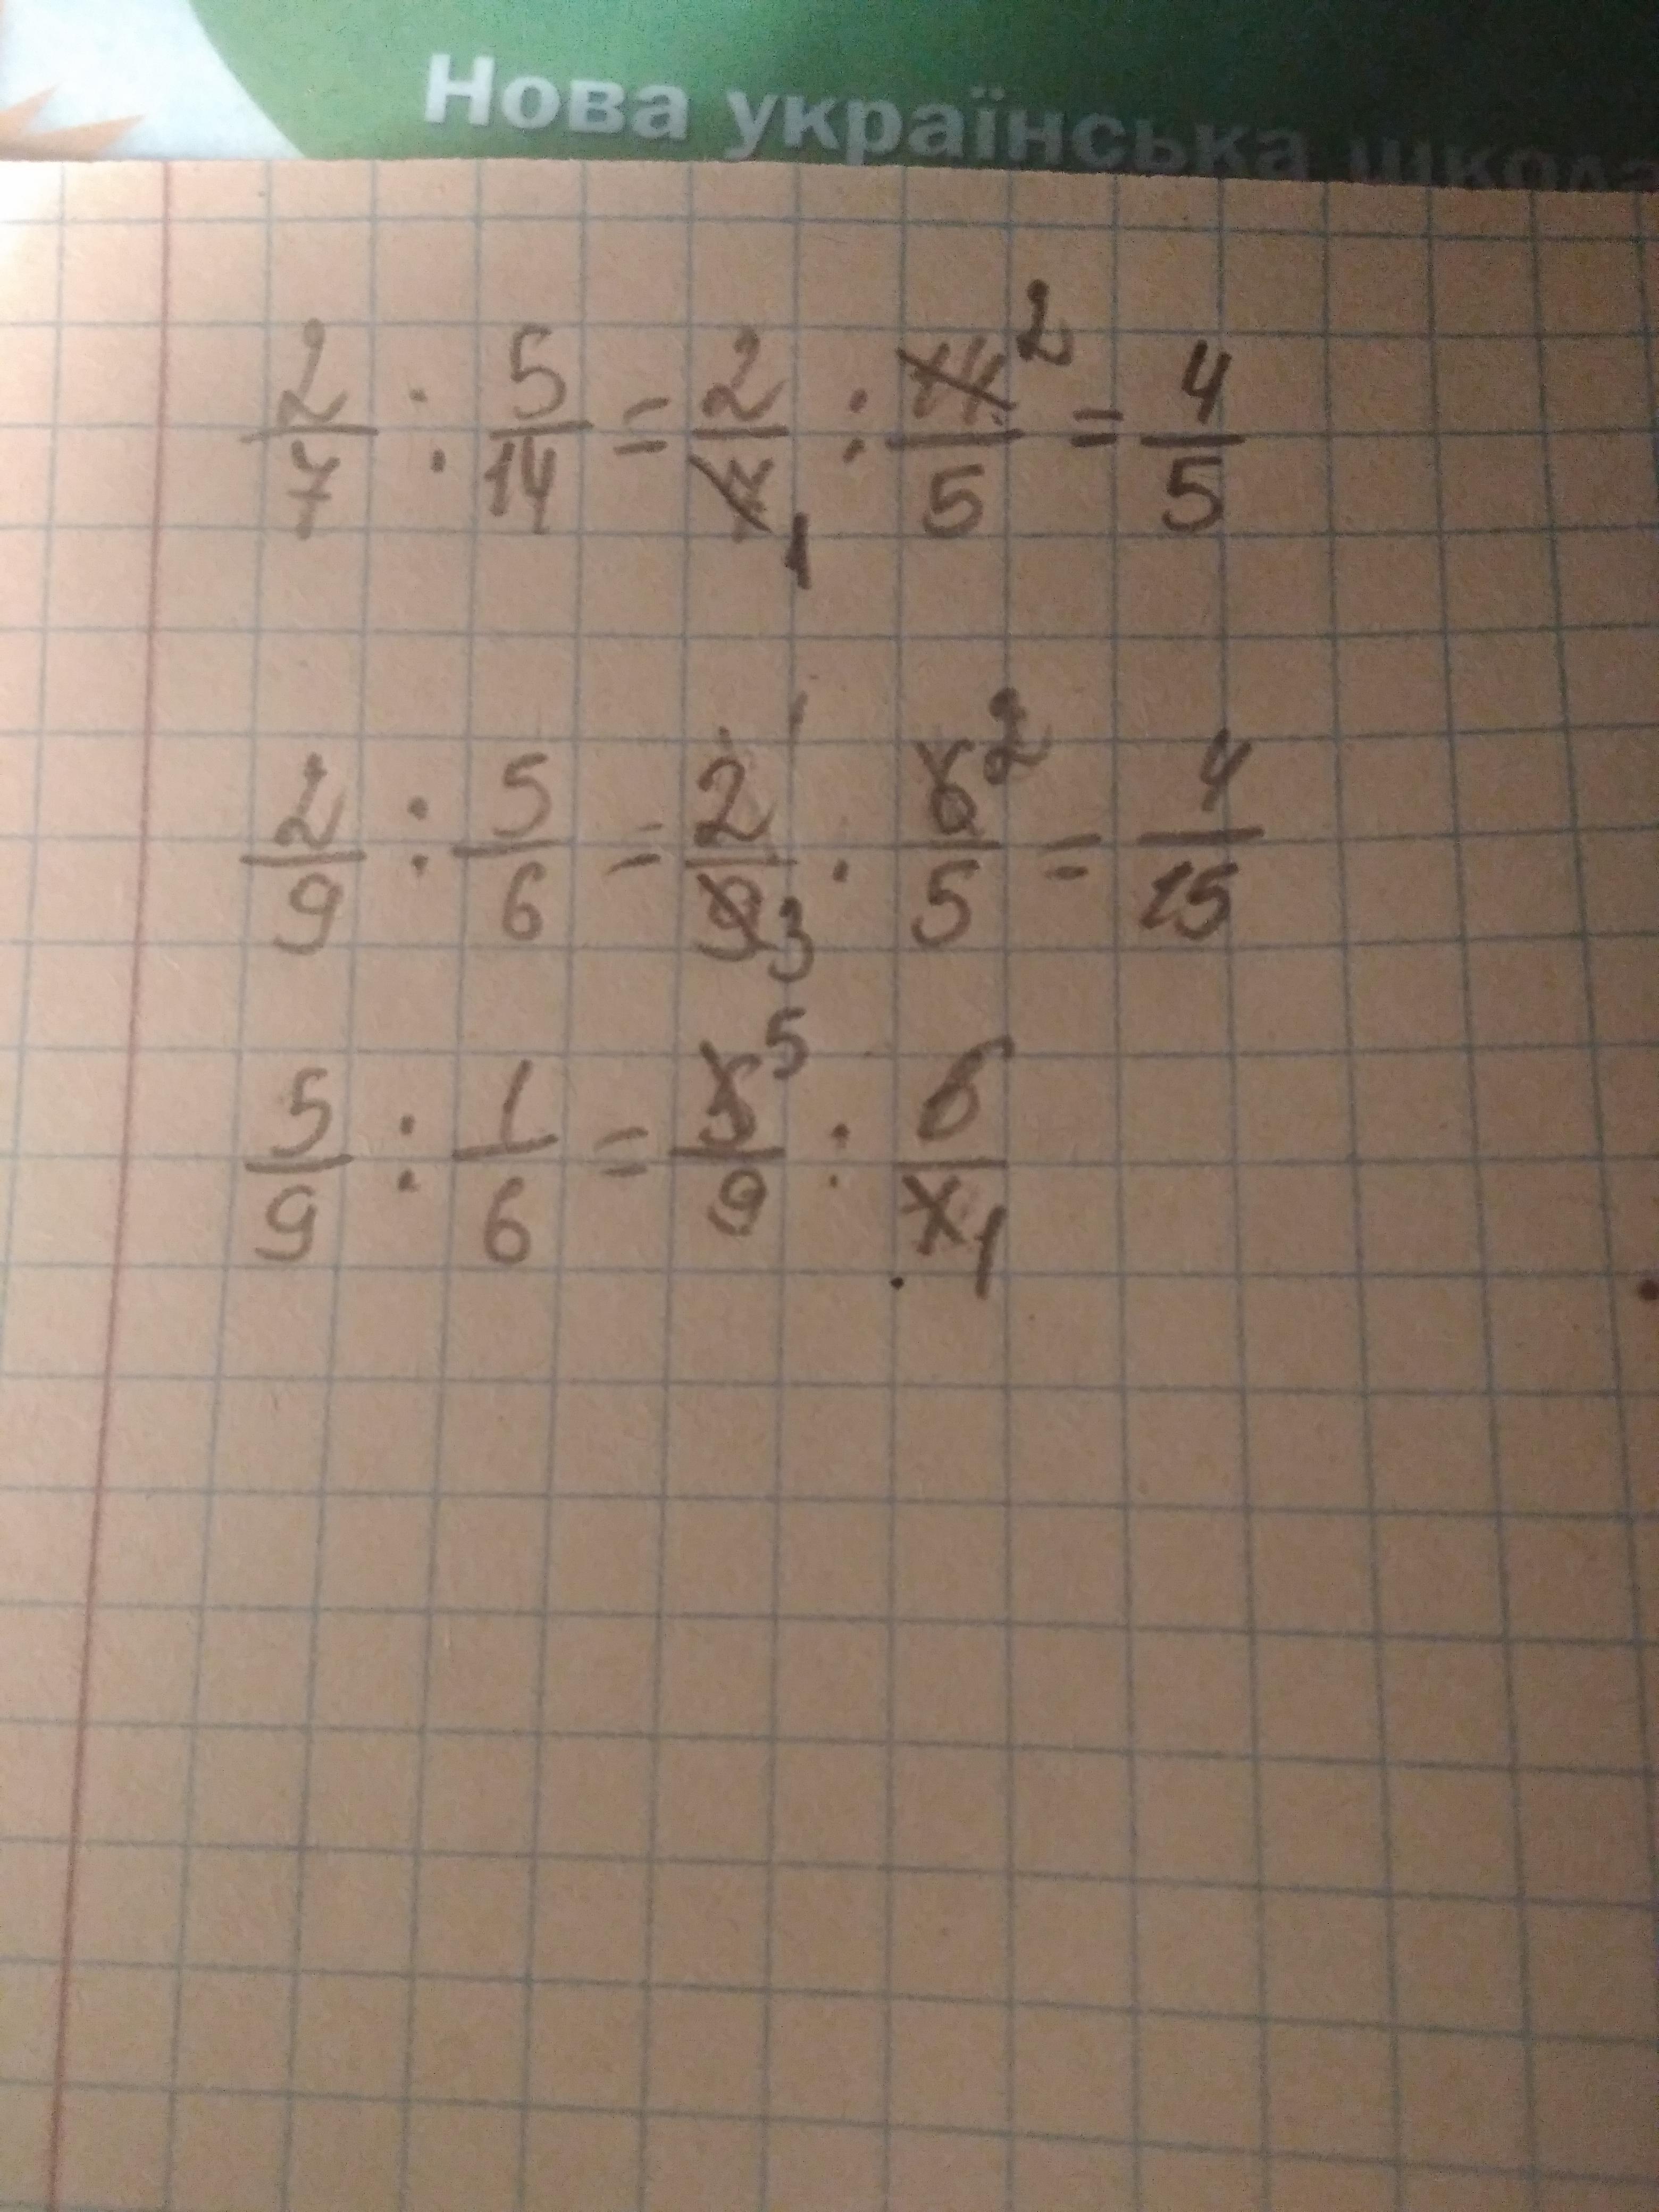 Нова українська школа
2/7 : 5/14 = 2/7 1 : 14 2/5 = 4/5
2/9 : 5/6 = 2/9 3 · 6 2/5 = 4/15
5/9 : 1/6 = 5 5/9 : 6/1 1